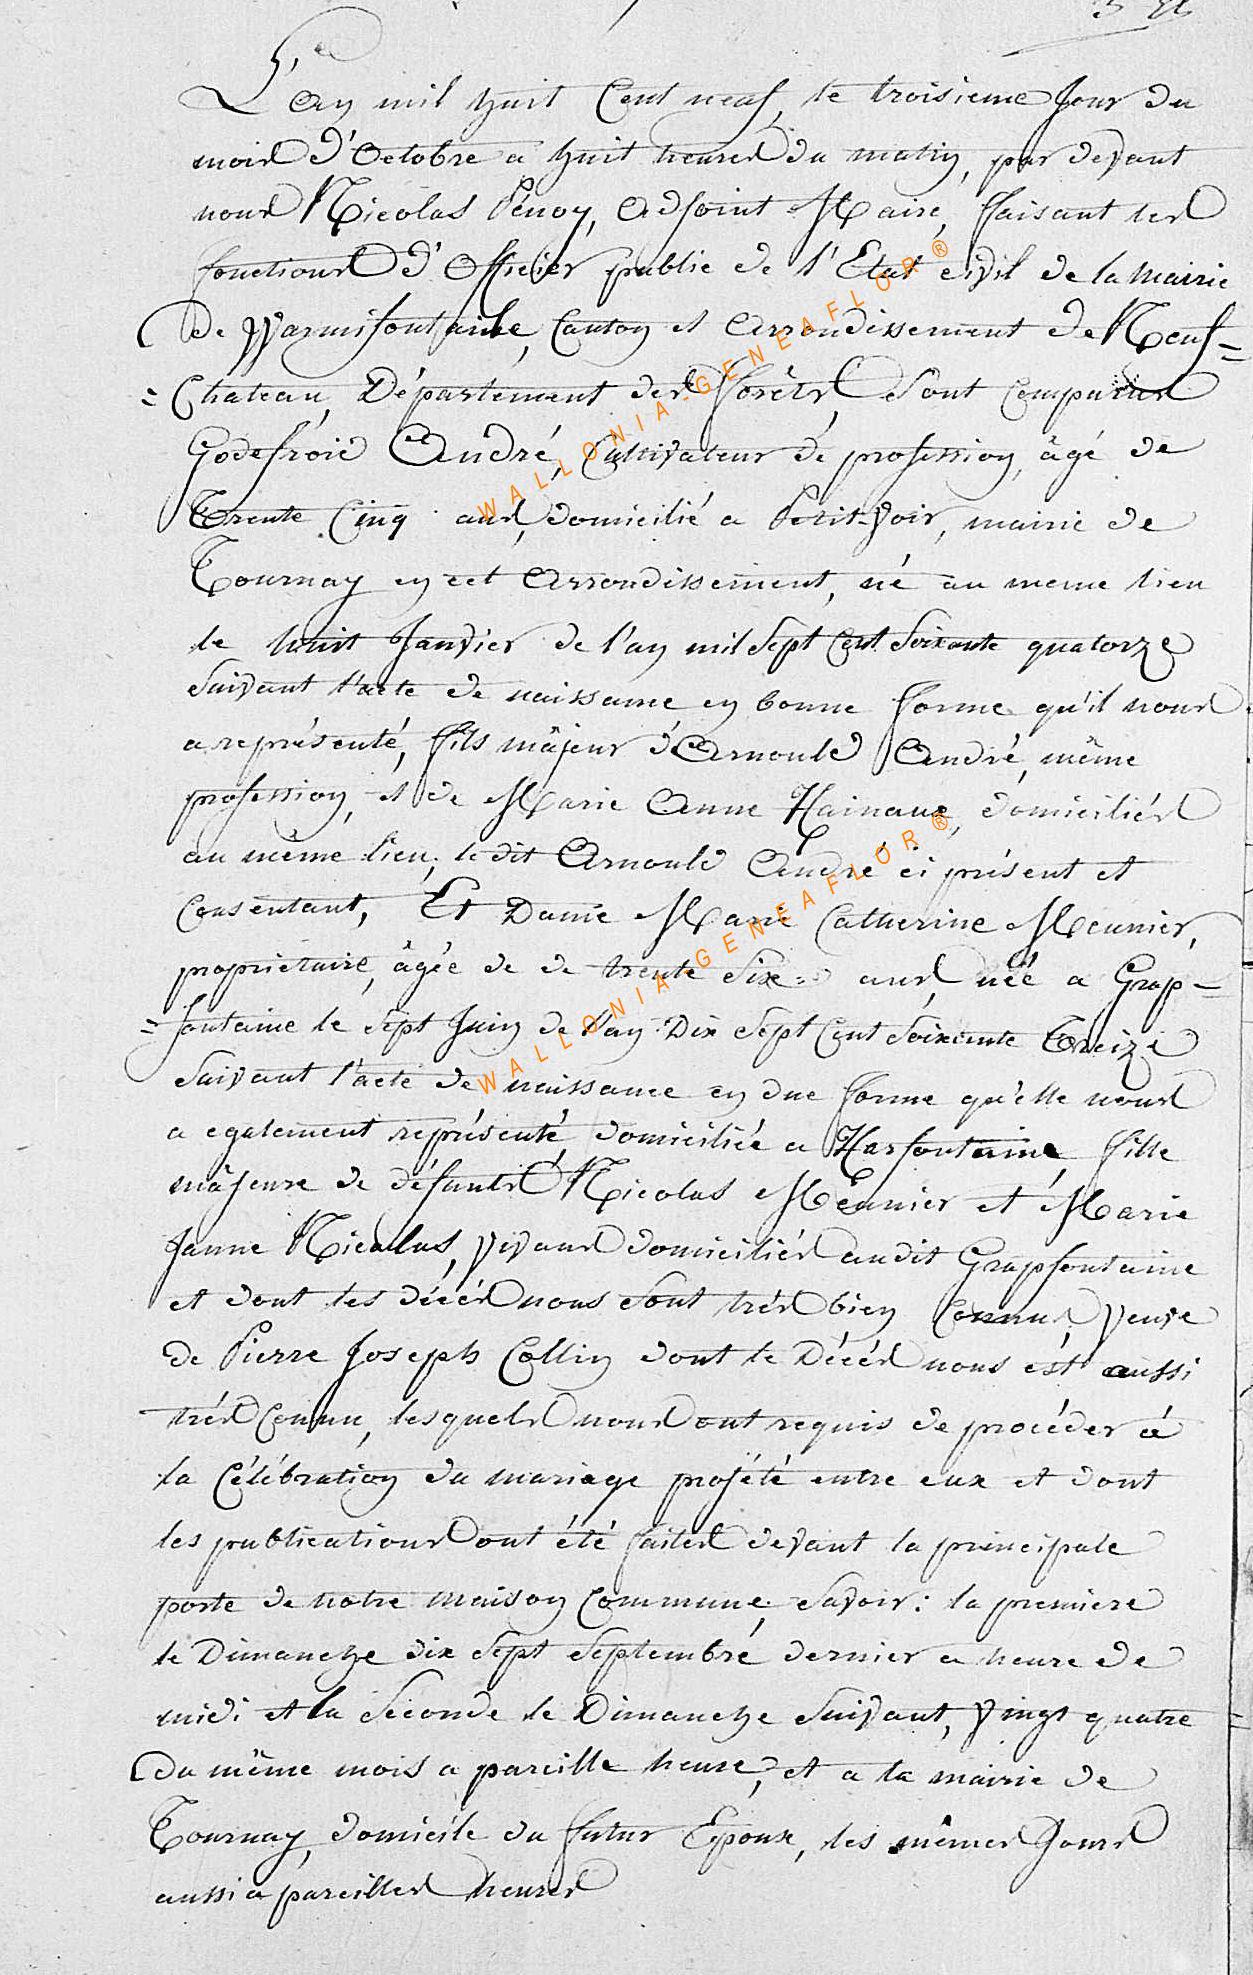 L'an mil huit Cent neuf, le troisieme Jour du
mois D'Octobre a huit heures du matin, par devant
nous Nicolas Pénoy, Adjoint Maire, faisant les
fonctions D'Officier public de l'Etat civil de la Mairie
de Warmifontaine, Canton et Arrondissement de Neuf=
=Chateau, Département des forêts, Sont Comparus
Godefroid André, Cultivateur de profession, âgé de
Trente Cinq ans, domicilié a Petit-Voir, mairie de
Tournay en cet Arrondissement, né au meme lieu
le huit Janvier de l'an mil Sept Cent Soixante quatorze
Suivant l'acte de naissance en bonne forme qu'il nous
a représenté, fils majeur d'Arnould André, même
profession, et de Marie Anne Hainaux, domiciliés
au même lieu, le dit Arnould André ci présent et
Consentant, Et Dame Marie Catherine Meunier,
propriétaire, âgée de de trente Six ans, née a Grap=
=fontaine le Sept Juin de l'an Dix Sept Cent Soixante Treize
Suivant l'acte de naissance en due forme qu'elle nous
a egalement représenté, domiciliée a Harfontaine, fille
majeure de défunts Nicolas Meunier et Marie
Janne Nicolas, vivans domiciliés audit Grapfontaine
et dont les décés nous Sont trés bien Connus, Veuve
de Pierre Joseph Collin dont le Décés nous est aussi
trés Connu, lesquels nous ont requis de procéder à
la Célébration du mariage projété entre eux et dont
les publications ont été faites devant la principale
porte de notre maison Commune, Savoir: la premiere
le Dimanche dix Sept Septembre dernier a heure de
midi et la Seconde le Dimanche Suivant, Vingt quatre
du même mois a pareille heure, et a la mairie de
Tournay, domicile du futur Epoux, les mêmes Jours
aussi a pareilles heures
WALLONIA-GENEAFLOR®
WALLONIA-GENEAFLOR®